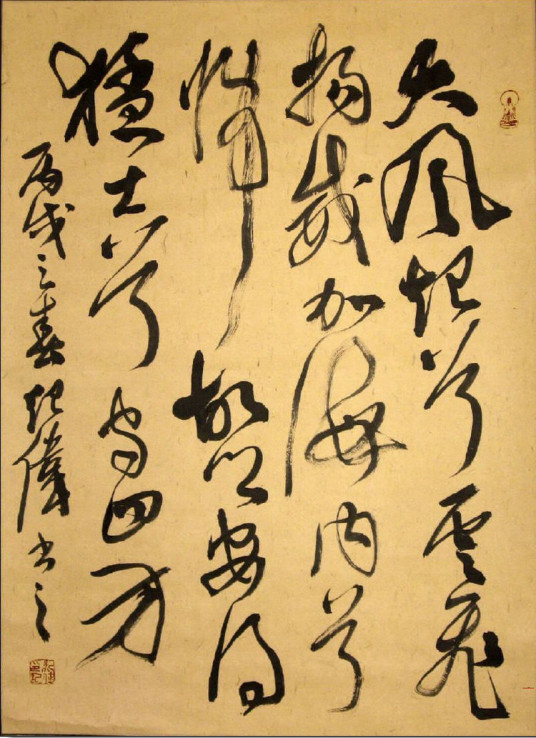 大風起兮雲飛
揚威加海内兮
歸故鄉安得
猛士兮守四方
丙戌之春紀偉書之